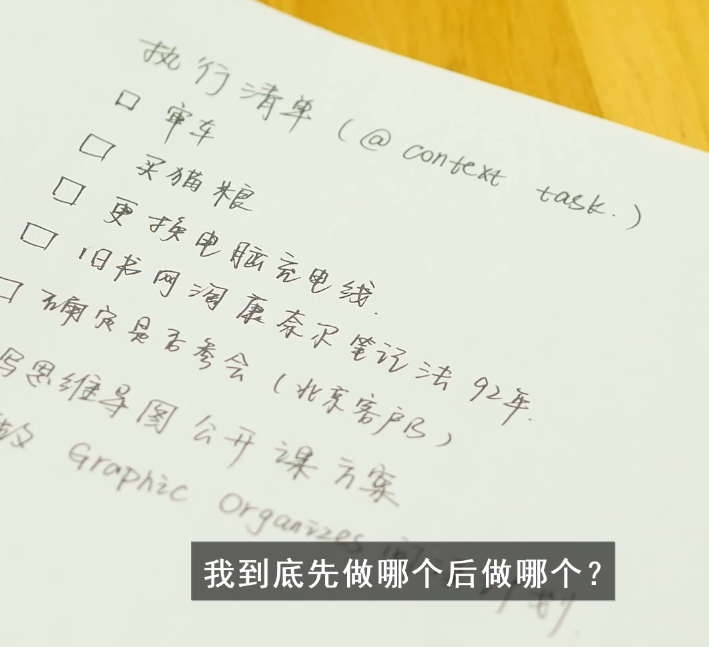 执行清单(@ context task.)
□ 审车
□ 买猫粮
□ 更换电脑充电线.
□ 旧书网淘康奈尔笔记法92年.
□ 确定是否参会(北京客户B)
写思维导图公开课方案
做 Graphic Organizes 计划.
我到底先做哪个后做哪个?